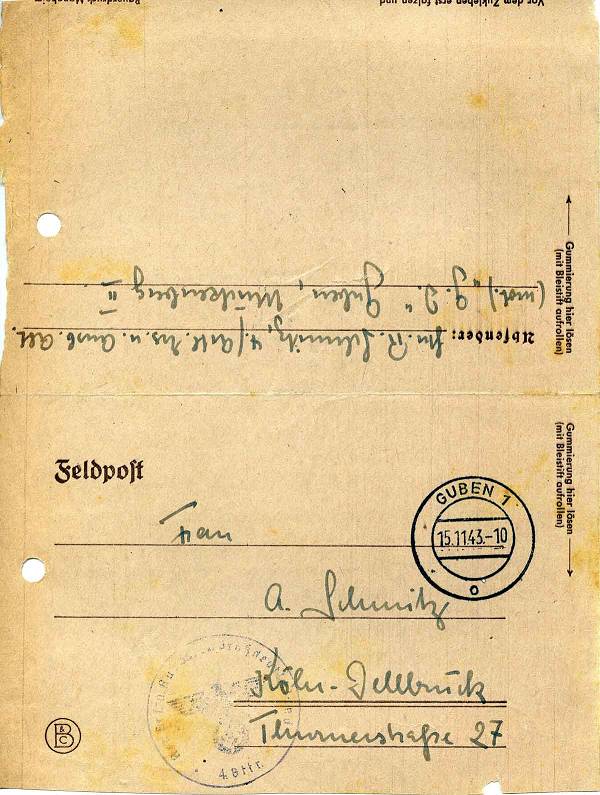 Vor dem Zukleben erst falzen und
Absender: R. Schmitz, 4./Artl. Ers. u. Ausb. Abt.
(mot.) "G. D." Guben,
Gummierung hier lösen
(mit Bleistift aufrollen)
Gummierung hier lösen
(mit Bleistift aufrollen)
Feldpost
GUBEN 1
15.11.43.-10
o
Frau
A. Schmitz
Köln-Dellbrück
Thurnerstraße 27
4. Bttr.
B & C